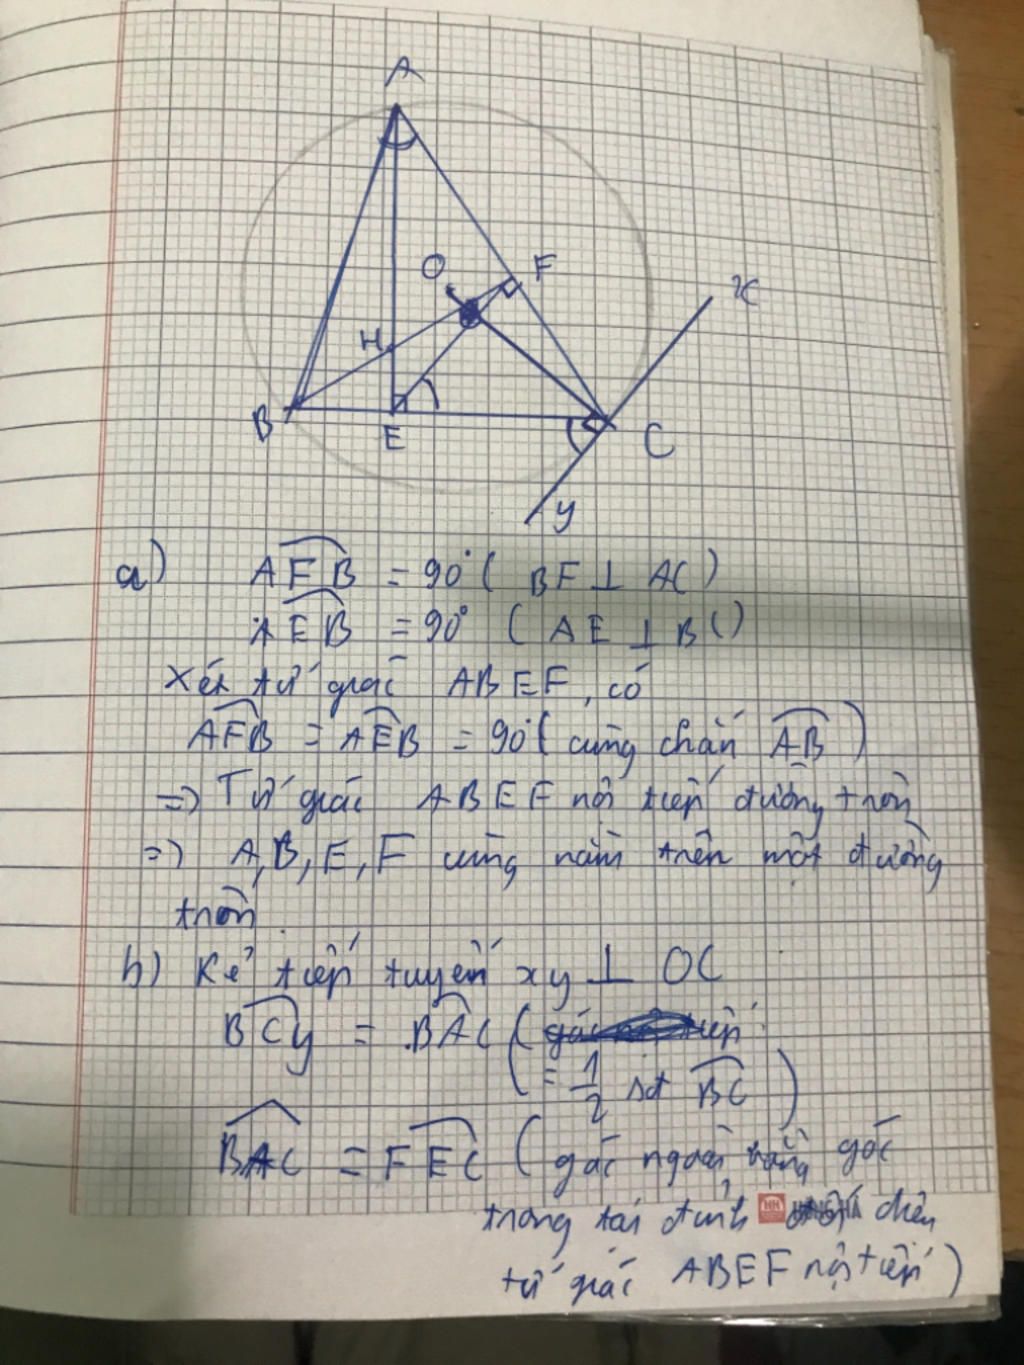 A
O
F
x
H
B
E
C
y
a) AFB = 90° ( BF ⊥ AC)
AEB = 90° ( AE ⊥ BC)
Xét tứ giác ABEF, có
AFB = AEB = 90° ( cùng chắn AB )
=> Tứ giác ABEF nội tiếp đường tròn
=> A, B, E, F cùng nằm trên một đường
tròn
b) Kẻ tiếp tuyến xy ⊥ OC
BCy = BAC ( tiếp
= 1/2 sđ BC )
BAC = FEC ( góc ngoài bằng góc
trong tại đỉnh diện
tứ giác ABEF nội tiếp )